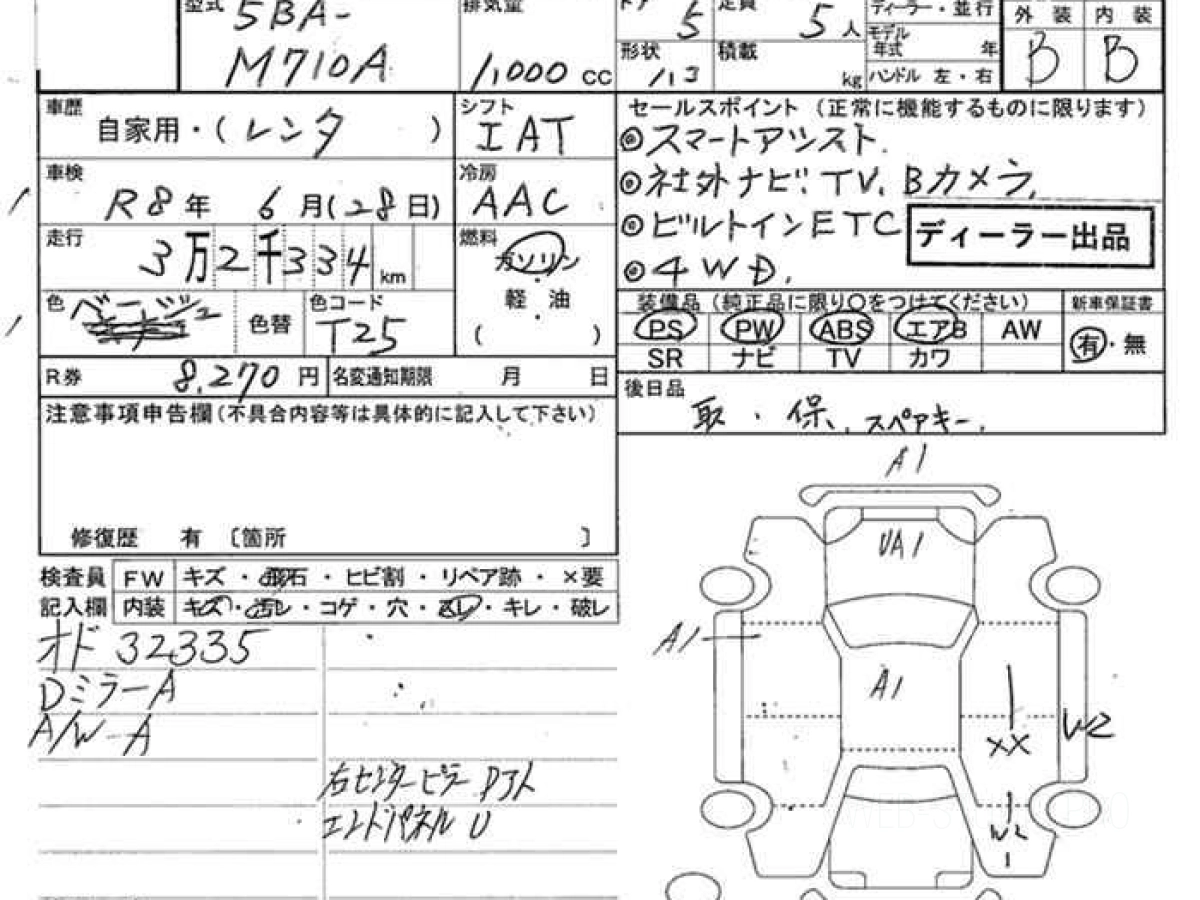 型式 5BA- 排気量 ドア 5 定員 5人 ディーラー・並行 外装 内装
M710A 1,000 cc 形状 積載 kg モデル年式 年 B B
ハンドル 左・右
車歴 自家用・(レンタ ) シフト IAT
セールスポイント (正常に機能するものに限ります)
◎スマートアシスト.
車検 R8年 6月(28日) 冷房 AAC
◎社外ナビ、TV、Bカメラ、
走行 3万2千334km 燃料 ガソリン
◎ビルトインETC
ディーラー出品
軽油
( )
◎4WD.
色 ベージュ 色替 色コード T25
装備品 (純正品に限り○をつけてください) 新車保証書
PS PW ABS エアB AW 有・無
SR ナビ TV カワ
R券 8,270円 名変通知期限 月 日
後日品 取・保、スペアキー、
注意事項申告欄(不具合内容等は具体的に記入して下さい)
修復歴 有 〔箇所 〕
検査員 FW キズ・飛石・ヒビ割・リペア跡・×要
記入欄 内装 キズ・汚レ・コゲ・穴・スレ・キレ・破レ
オド 32335
Dミラー A
A/W A
右センターピラー
エンドパネル U
A1
UA1
A1
A1
XX
W2
W2
1